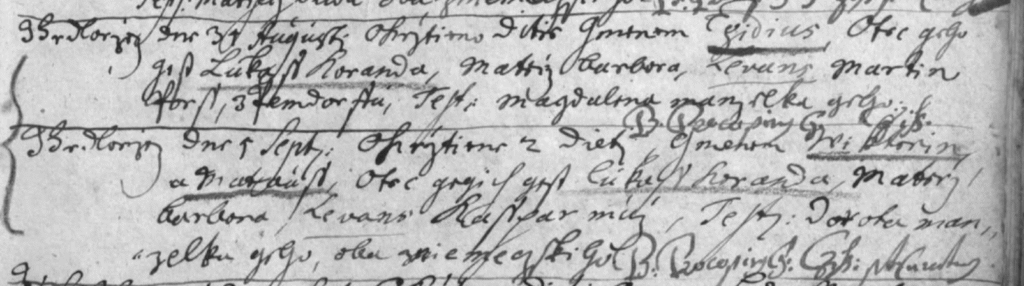 dne 31 Augusti Okrztieno Ditie Gmenem Egidius, Otec geho
gest Lukass Koranda, Materz barbora, Levans Martin
forst, z Temdorffu, Test: Magdalena manzelka geho. P. Procopius
dne 5 Sept: Okrztiene 2 Dietj, Gmenem Wiktorin,
a Mataussi, Otec gegich gest Lukass Koranda, Materz
barbora Levans Kasspar Test: Dorota man„
zelka geho, oba P. Procopius